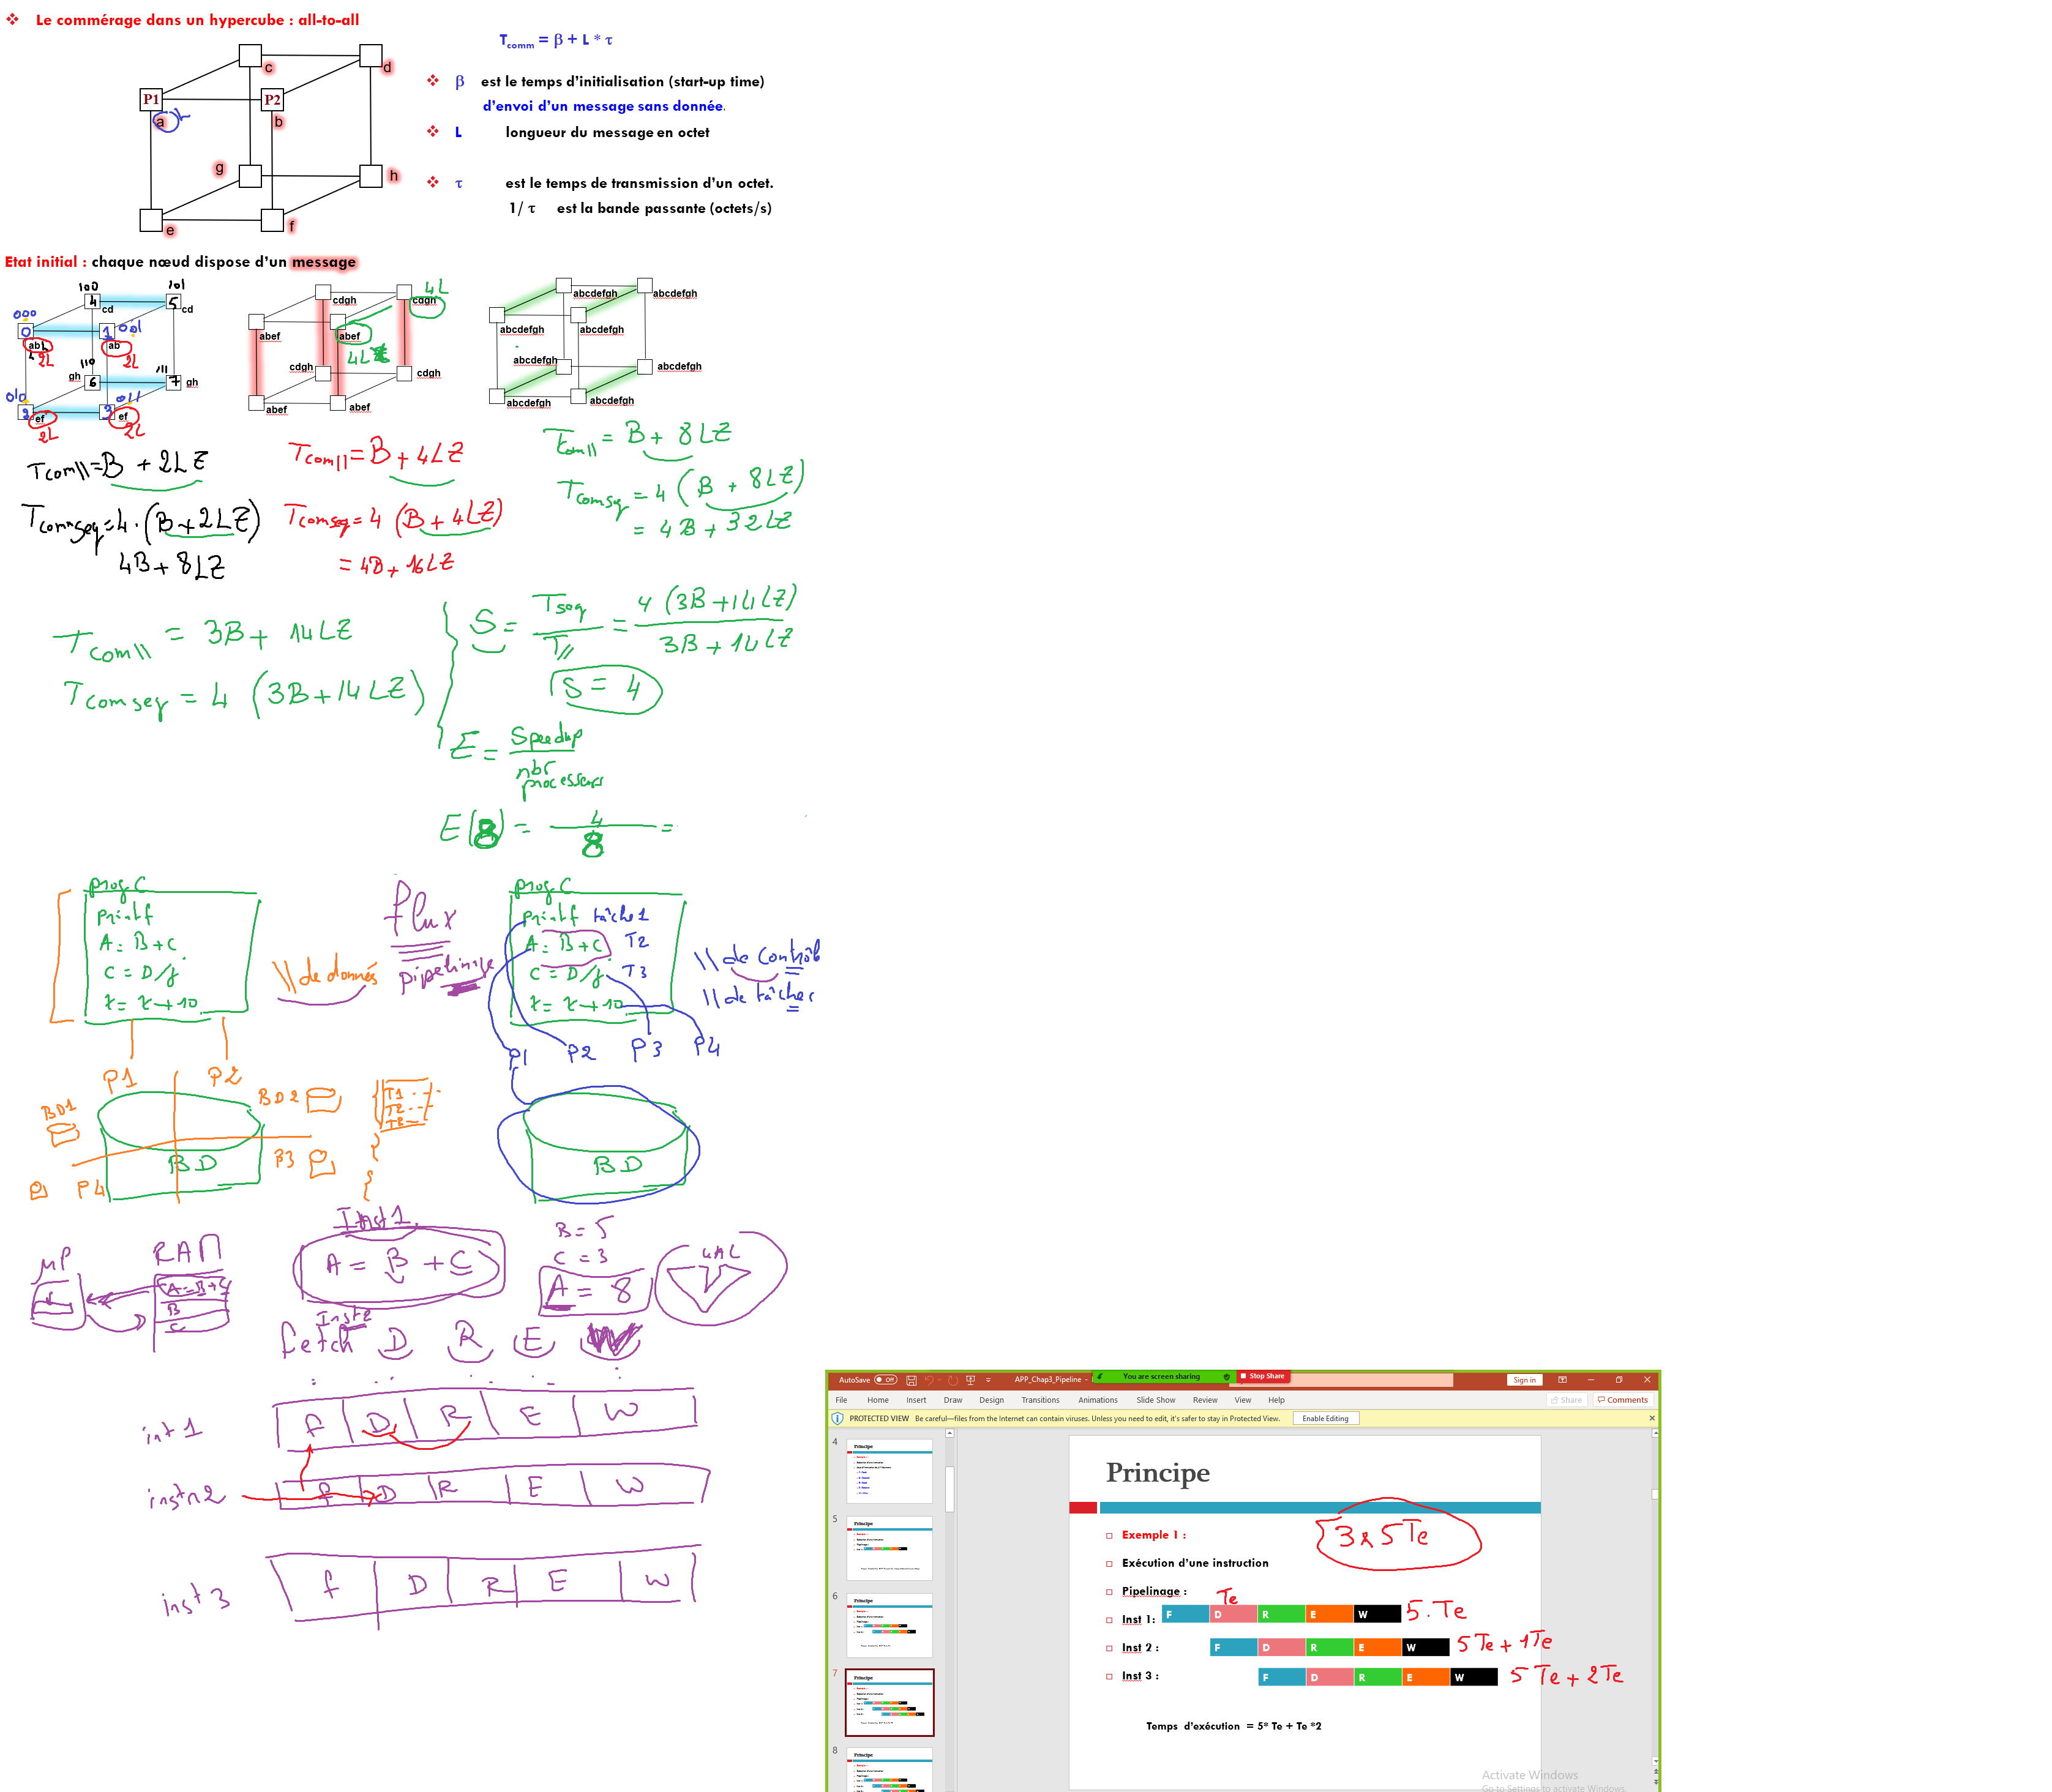 ❖ Le commérage dans un hypercube : all-to-all
Tcomm = β + L * τ
c
d
P1
P2
a
b
g
h
e
f
❖ β est le temps d'initialisation (start-up time)
d'envoi d'un message sans donnée.
❖ L longueur du message en octet
❖ τ est le temps de transmission d'un octet.
1/ τ est la bande passante (octets/s)
Etat initial : chaque nœud dispose d'un message
100
101
4
5
cd
cd
000
0
1
001
ab
ab
2L
2L
110
111
gh
6
7
gh
010
2
3
011
ef
ef
2L
2L
4L
cdgh
cdgh
abef
abef
4L
cdgh
cdgh
abef
abef
abcdefgh
abcdefgh
abcdefgh
abcdefgh
abcdefgh
abcdefgh
abcdefgh
abcdefgh
Tcom\\ = B + 2LZ
Tcommseq = 4 . (B + 2LZ)
4B + 8LZ
Tcom\\ = B + 4LZ
Tcomseq = 4 (B + 4LZ)
= 4B + 16LZ
Tcom\\ = B + 8LZ
Tcomseq = 4 (B + 8LZ)
= 4B + 32LZ
Tcom\\ = 3B + 14LZ
Tcomseq = 4 (3B + 14LZ)
S = Tseq / T// = 4 (3B + 14LZ) / 3B + 14LZ
S = 4
E = Speedup / nbr processeurs
E(8) = 4 / 8 =
prog C
printf
A = B + C
C = D/j
x = x + 10
\\ de donnés
flux
pipelinage
prog C
printf tâche 1
A = B + C T2
C = D/j T3
x = x + 10
\\ de contrôl
\\ de tâches
P1 P2 P3 P4
P1 P2
BD1
BD2
BD
B3
P4
T1
T2
BD
MP
RAM
A = B + C
B
C
Inst 1
A = B + C
B = 5
C = 3
A = 8
UAL
Inst 2
fetch D R E W
int 1 f D R E W
instn 2 f D R E W
inst 3 f D R E W
AutoSave Off
APP_Chap3_Pipeline -
You are screen sharing
Stop Share
Sign in
File Home Insert Draw Design Transitions Animations Slide Show Review View Help
Share
Comments
PROTECTED VIEW Be careful—files from the Internet can contain viruses. Unless you need to edit, it's safer to stay in Protected View.
Enable Editing
4
Principe
5
Principe
6
Principe
7
Principe
8
Principe
Principe
Exemple 1 :
3 x 5 Te
Exécution d'une instruction
Pipelinage :
Te
Inst 1: F D R E W 5 . Te
Inst 2 : F D R E W 5 Te + 1 Te
Inst 3 : F D R E W 5 Te + 2 Te
Temps d'exécution = 5* Te + Te *2
Activate Windows
Go to Settings to activate Windows.